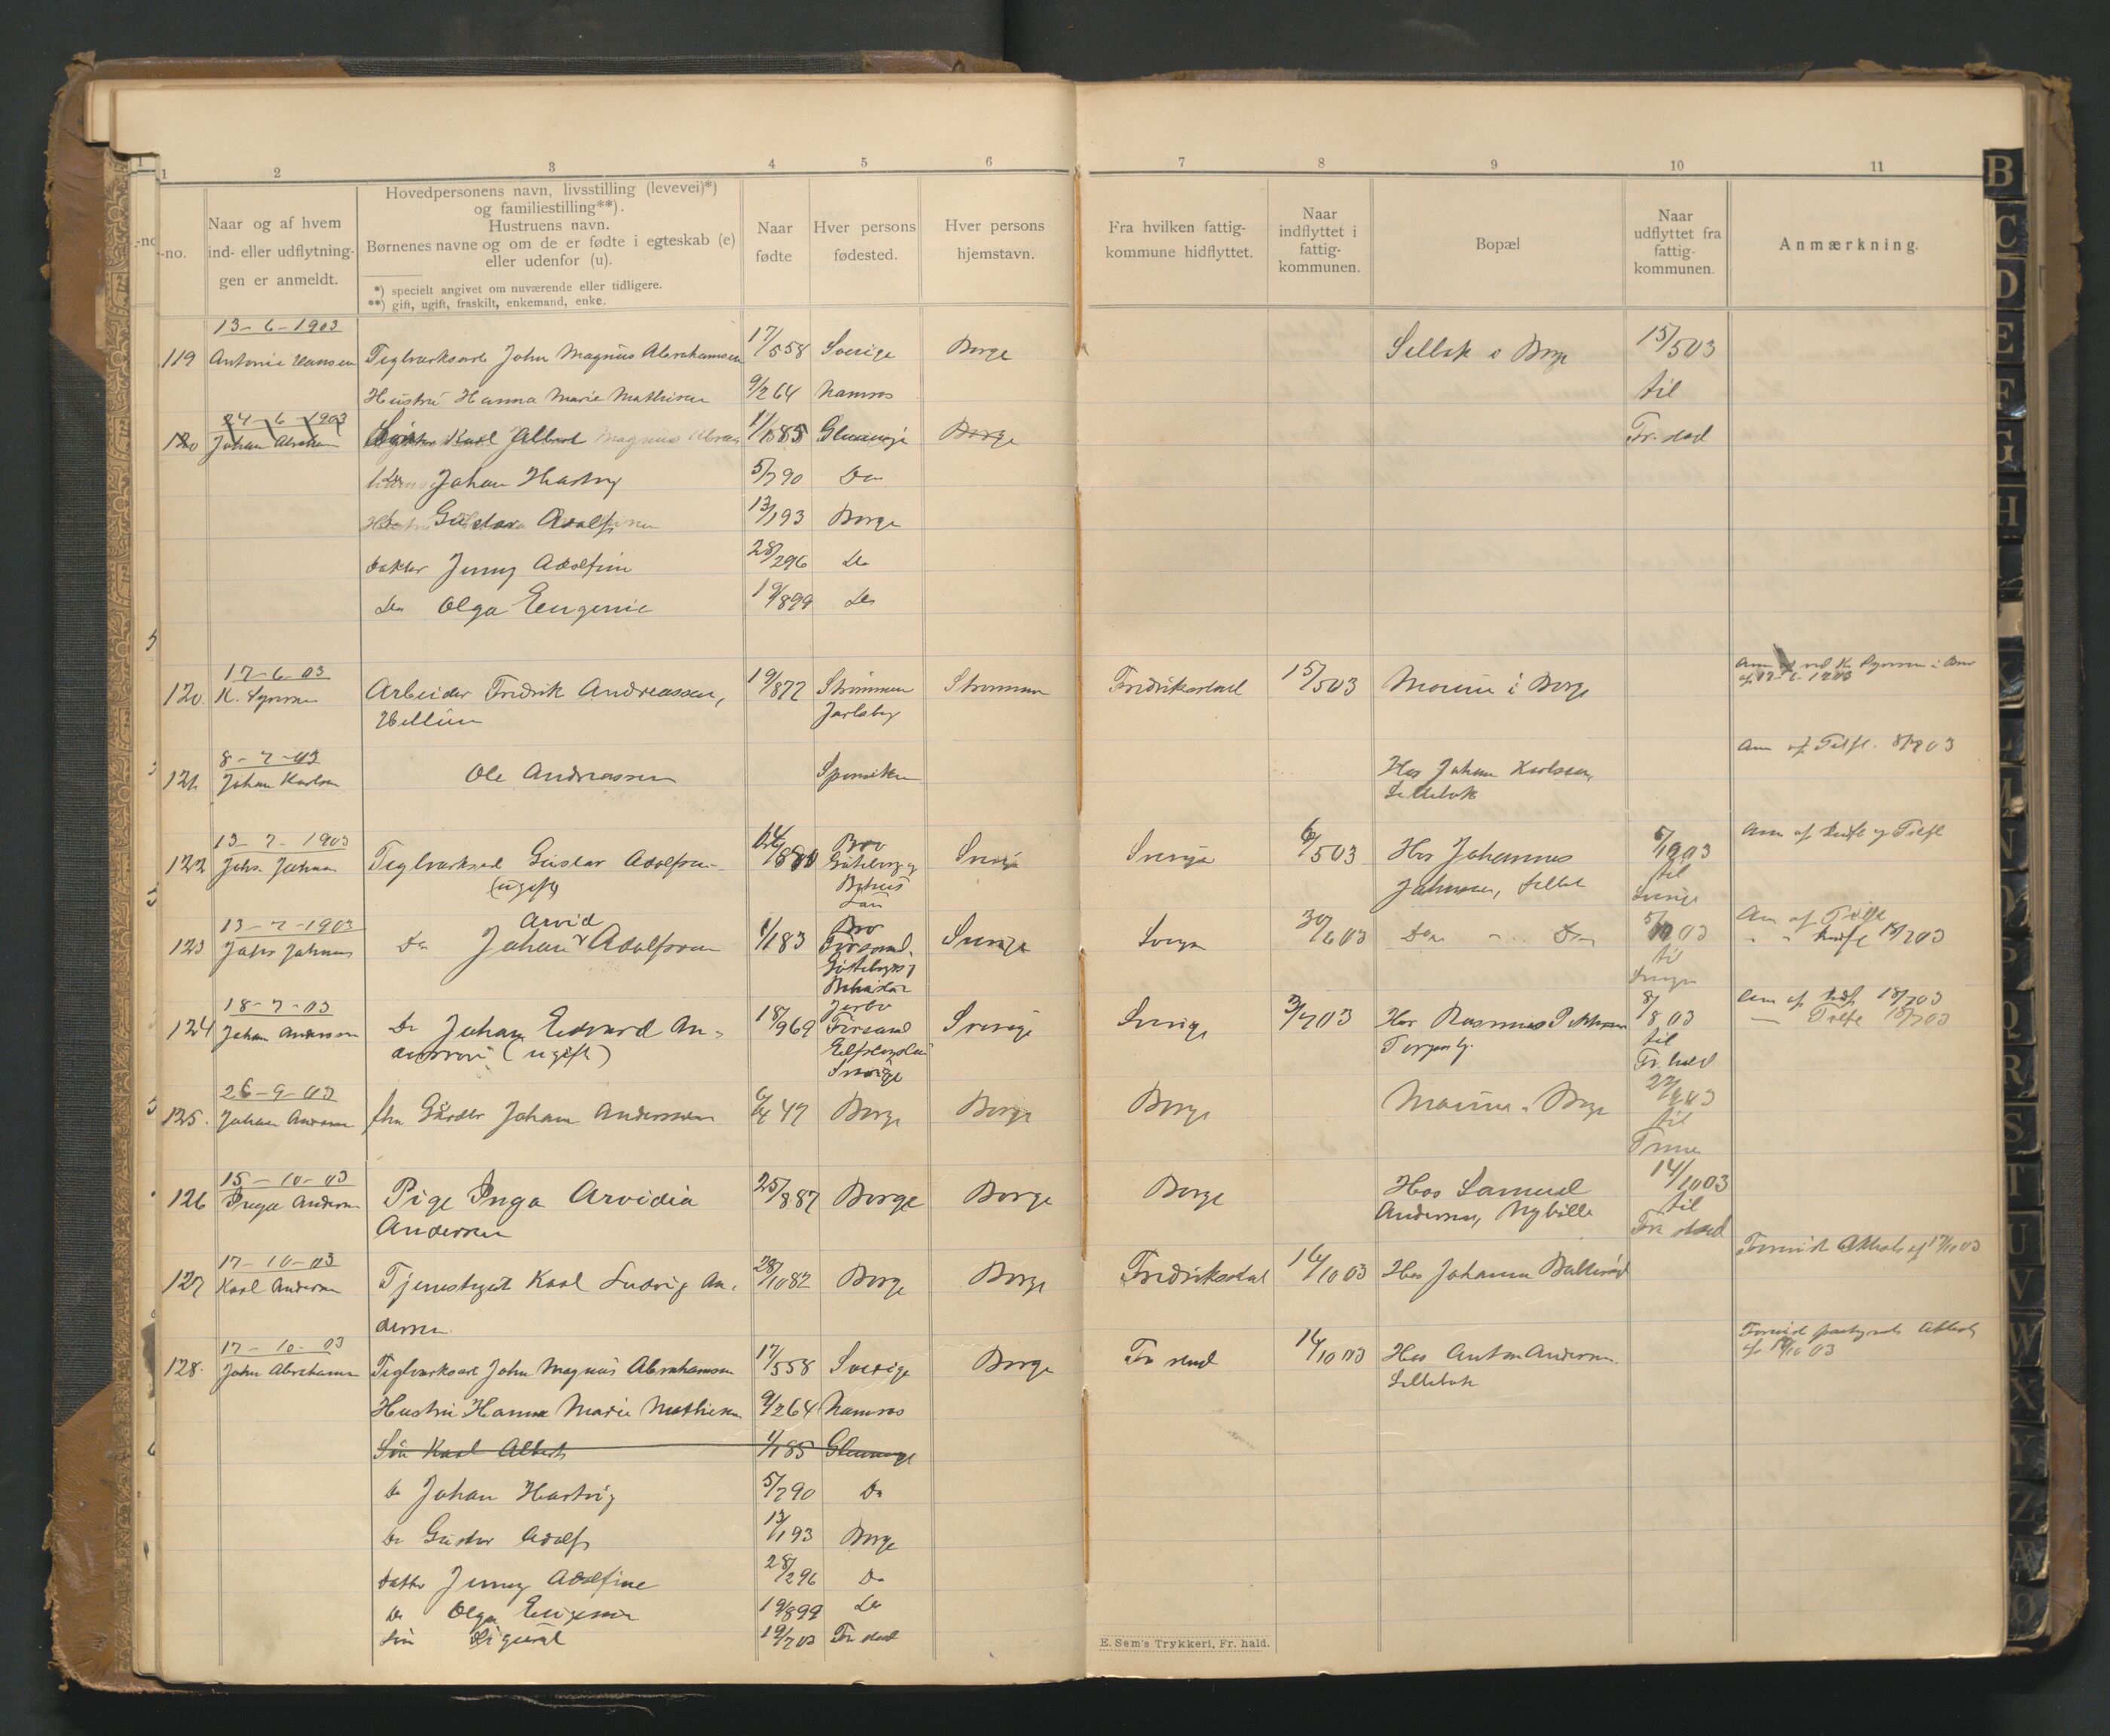 1 2 3 4 5 6 7 8 9 10 11
-no.
Naar og af hvem
ind- eller udflytnin-
gen er anmeldt.
Hovedpersonens navn, livsstilling (levevei)*)
og familiestilling**).
Hustruens navn.
Børnenes navne og om de er fødte i egteskab (e)
eller udenfor (u).
*) specielt angivet om nuværende eller tidligere.
**) gift, ugift, fraskilt, enkemand, enke.
Naar
fødte
Hver persons
fødested.
Hver persons
hjemstavn.
Fra hvilken fattig-
kommune hidflyttet.
Naar
indflyttet i
fattig-
kommunen.
Bopæl
Naar
udflyttet fra
fattig-
kommunen.
Anmærkning.
13-6-1903
119 Antonie Hansen Teglværksarb John Magnus Abrahamsen 17/5 58 Sverige Borge Sellebak i Borge 15/5 03
Hustru Hanna Marie Mathisen 9/2 64 Namsos til
24-6-1903
120 Johan Abraham Søn Karl Albert 1/1 85 Glemminge Borge Fr. stad
Do Johan Hartvig 5/7 90 Do
Do Gustav Adolf 13/1 93 Borge
Datter Jenny Adolfine 28/2 96 Do
Do Olga Eugenie 19/8 99 Do
17-6-03
120. K. Syversen Arbeider Fredrik Andreassen, 19/8 77 Strømmen Strømmen Fredriksstad 15/5 03 Moum i Borge
Jarlsberg
8-7-03
121 Johan Karlsen Ole Andreassen Spervika Hos Johan Karlsson, Anm af Tilfl. 8/7 03
Sellebak
13-7-1903
122 Johs. Johnsen Teglværksarb Gustav Adolfsen 880 Bro Sverige Sverige 6/5 03 Hos Johannes til Anm af Indfl og Tilfl
(ugift) Göteborg og Johnsen, Sellebak Sverige
Bohus
Län
13-7-1903
123 Johs Johnsen Do Johan Arvid Adolfsson 1/1 83 Bro Sverige Sverige 30/6 03 Do " Do til Anm af Tilfl
" " Indfl 18/7 03
Göteborgs
Sverige
18-7-03
124 Johan Andersson Do Johan Edvard An- 18/9 69 Jerbo Sverige Sverige 3/7 03 Hos Rasmus 8/8 03 Anm af Indfl 18/7 03
dersson (ugift) Torsnes til — Tilfl 18/7 03
Elfsborgslän Fr. hald
Sverige
26-9-03
125. Johan Andersen fhv Gårdbr Johan Anderssen 6/4 47 Borge Borge Borge Moum i Borge til
Tune
15-10-03
126 Inga Andersen Pige Inga Arvidia 25/8 87 Borge Borge Borge Hos Samuel 14/10 03
Andersen Andersen, Nybølle til
Fr. stad
17-10-03
127 Karl Andersen Tjenestegut Karl Ludvig An- 28/10 82 Borge Borge Fredriksstad 14/10 03 Hos Johannes Forevist Attest af 17/10 03
dersen.
17-10-03
128. John Abrahamsen Teglværksarb John Magnus Abrahamsen 17/5 58 Sverige Borge Fr stad 14/10 03 Hos Anton Andersen. Forevist Attest
Sellebak
Hustru Hanna Marie Mathisen 9/2 64 Namsos
Søn Karl Albert 1/1 85 Glemminge
Do Johan Hartvig 5/7 90 Do
Do Gustav Adolf 13/1 93 Borge
Datter Jenny Adolfine 28/2 96 Do
Do Olga Eugenie 19/8 99 Do
Søn Sigurd 19/7 03 Fr stad
E. Sem's Trykkeri, Fr. hald.
B
C
D
E
F
G
H
K
L
M
N
O
P
Q
R
S
T
U
V
W
X
Y
Z
Æ
Ø